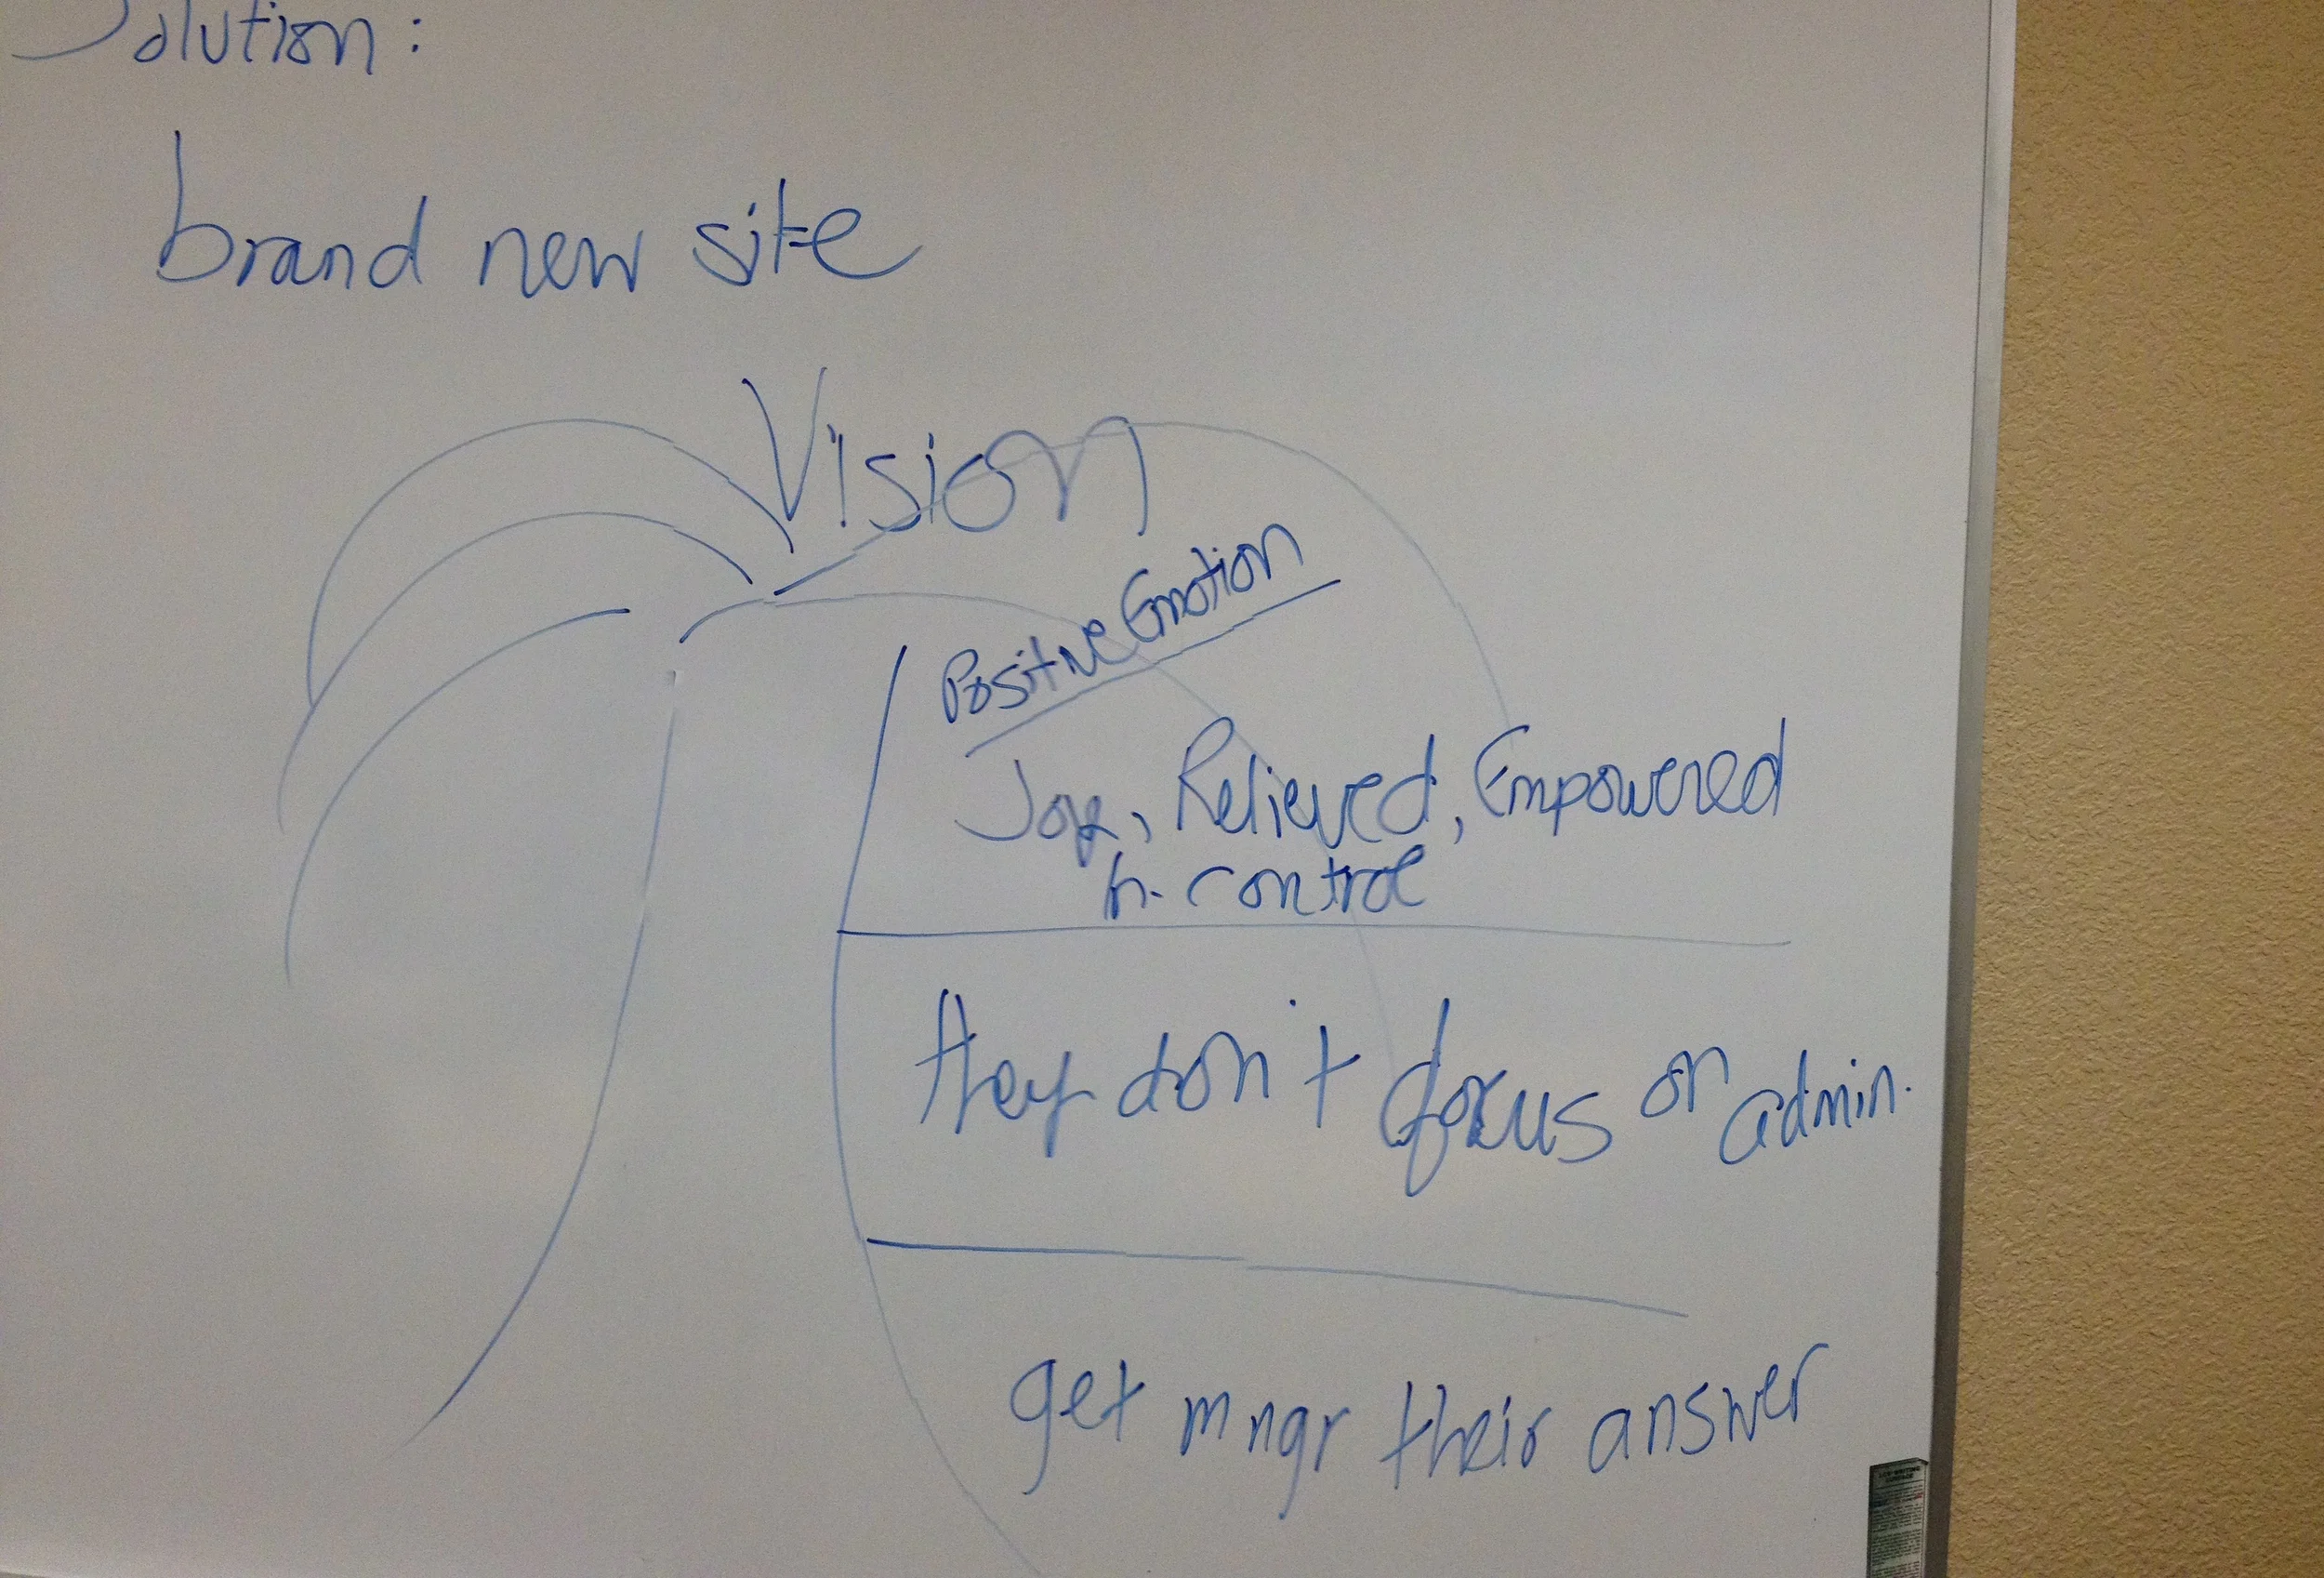 Solution:
brand new site
Vision
Positive Emotion
Joy, Relieved, Empowered
In-control
they don't focus on admin.
get mngr their answer